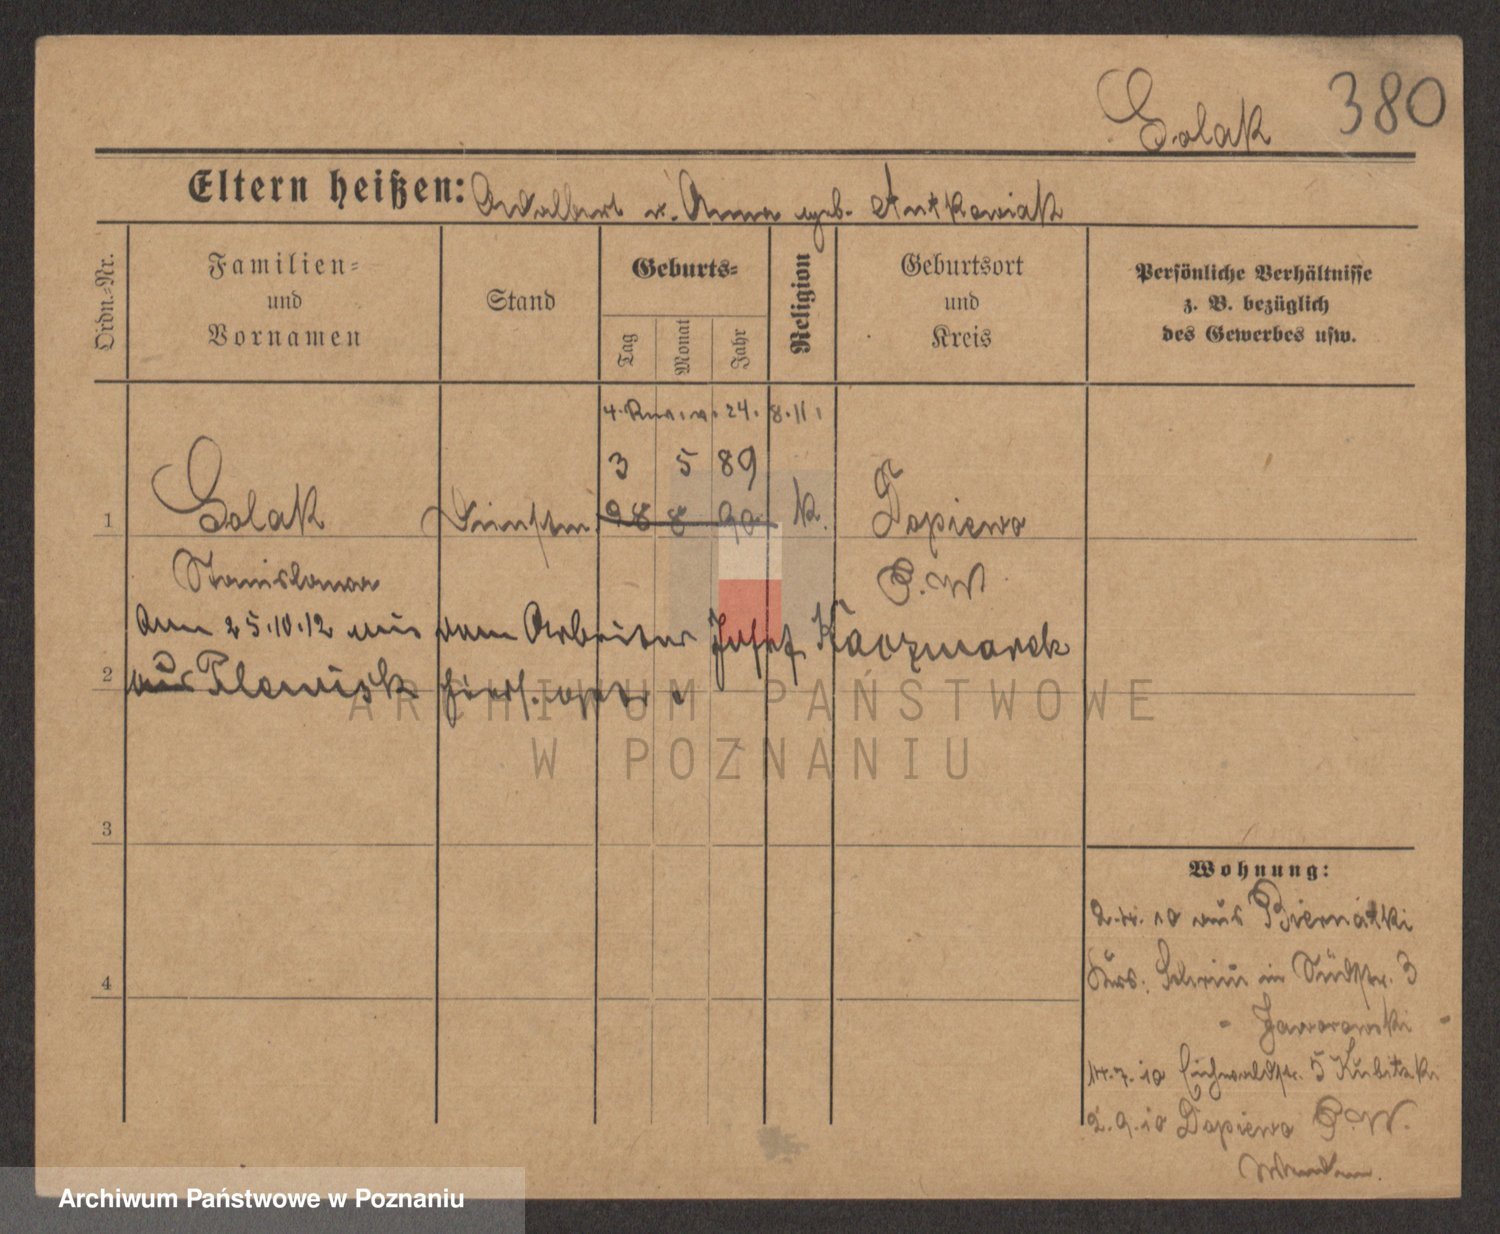 Golak 380
Eltern heißen: Adalbert u. Anna geb. Antkowiak
Ordn.=Nr.
Familien=
und
Vornamen
Stand
Geburts=
Tag
Monat
Jahr
Religion
Geburtsort
und
Kreis
Persönliche Verhältnisse
z. B. bezüglich
des Gewerbes usw.
24. 8.11.
3 5 89
1 Golak 28 8 90 k. Dopiewo
Stanislawa P.W
Am 25.10.12 mit dem Arbeiter Josef Kaczmarek
2 aus Plewisk
3
4
Wohnung:
2.4.10 aus Biernatki
Krs. Schrim in Südstr. 3
- Jaworowski -
14.7.10 Eichwaldstr. 5 Kubitzki
2.9.10 Dopiewo P.W.
ARCHIWUM PAŃSTWOWE
W POZNANIU
Archiwum Państwowe w Poznaniu